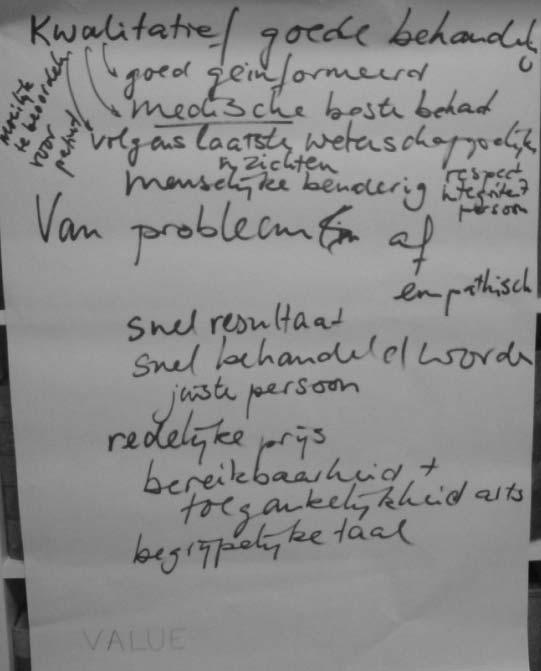 Kwalitatief goede behandel
goed geïnformeerd
medische beste behad
volgens laatste wetenschappelijke
inzichten
moeilijk
te beoordelen
voor
patient
menselijke benderig
respect
integriteit
persoon
Van probleem af
+
empathisch
snel resultaat
snel behandeld worde
juiste persoon
redelijke prijs
bereikbaarheid +
toegankelijkheid arts
begrijpelijke taal
VALUE